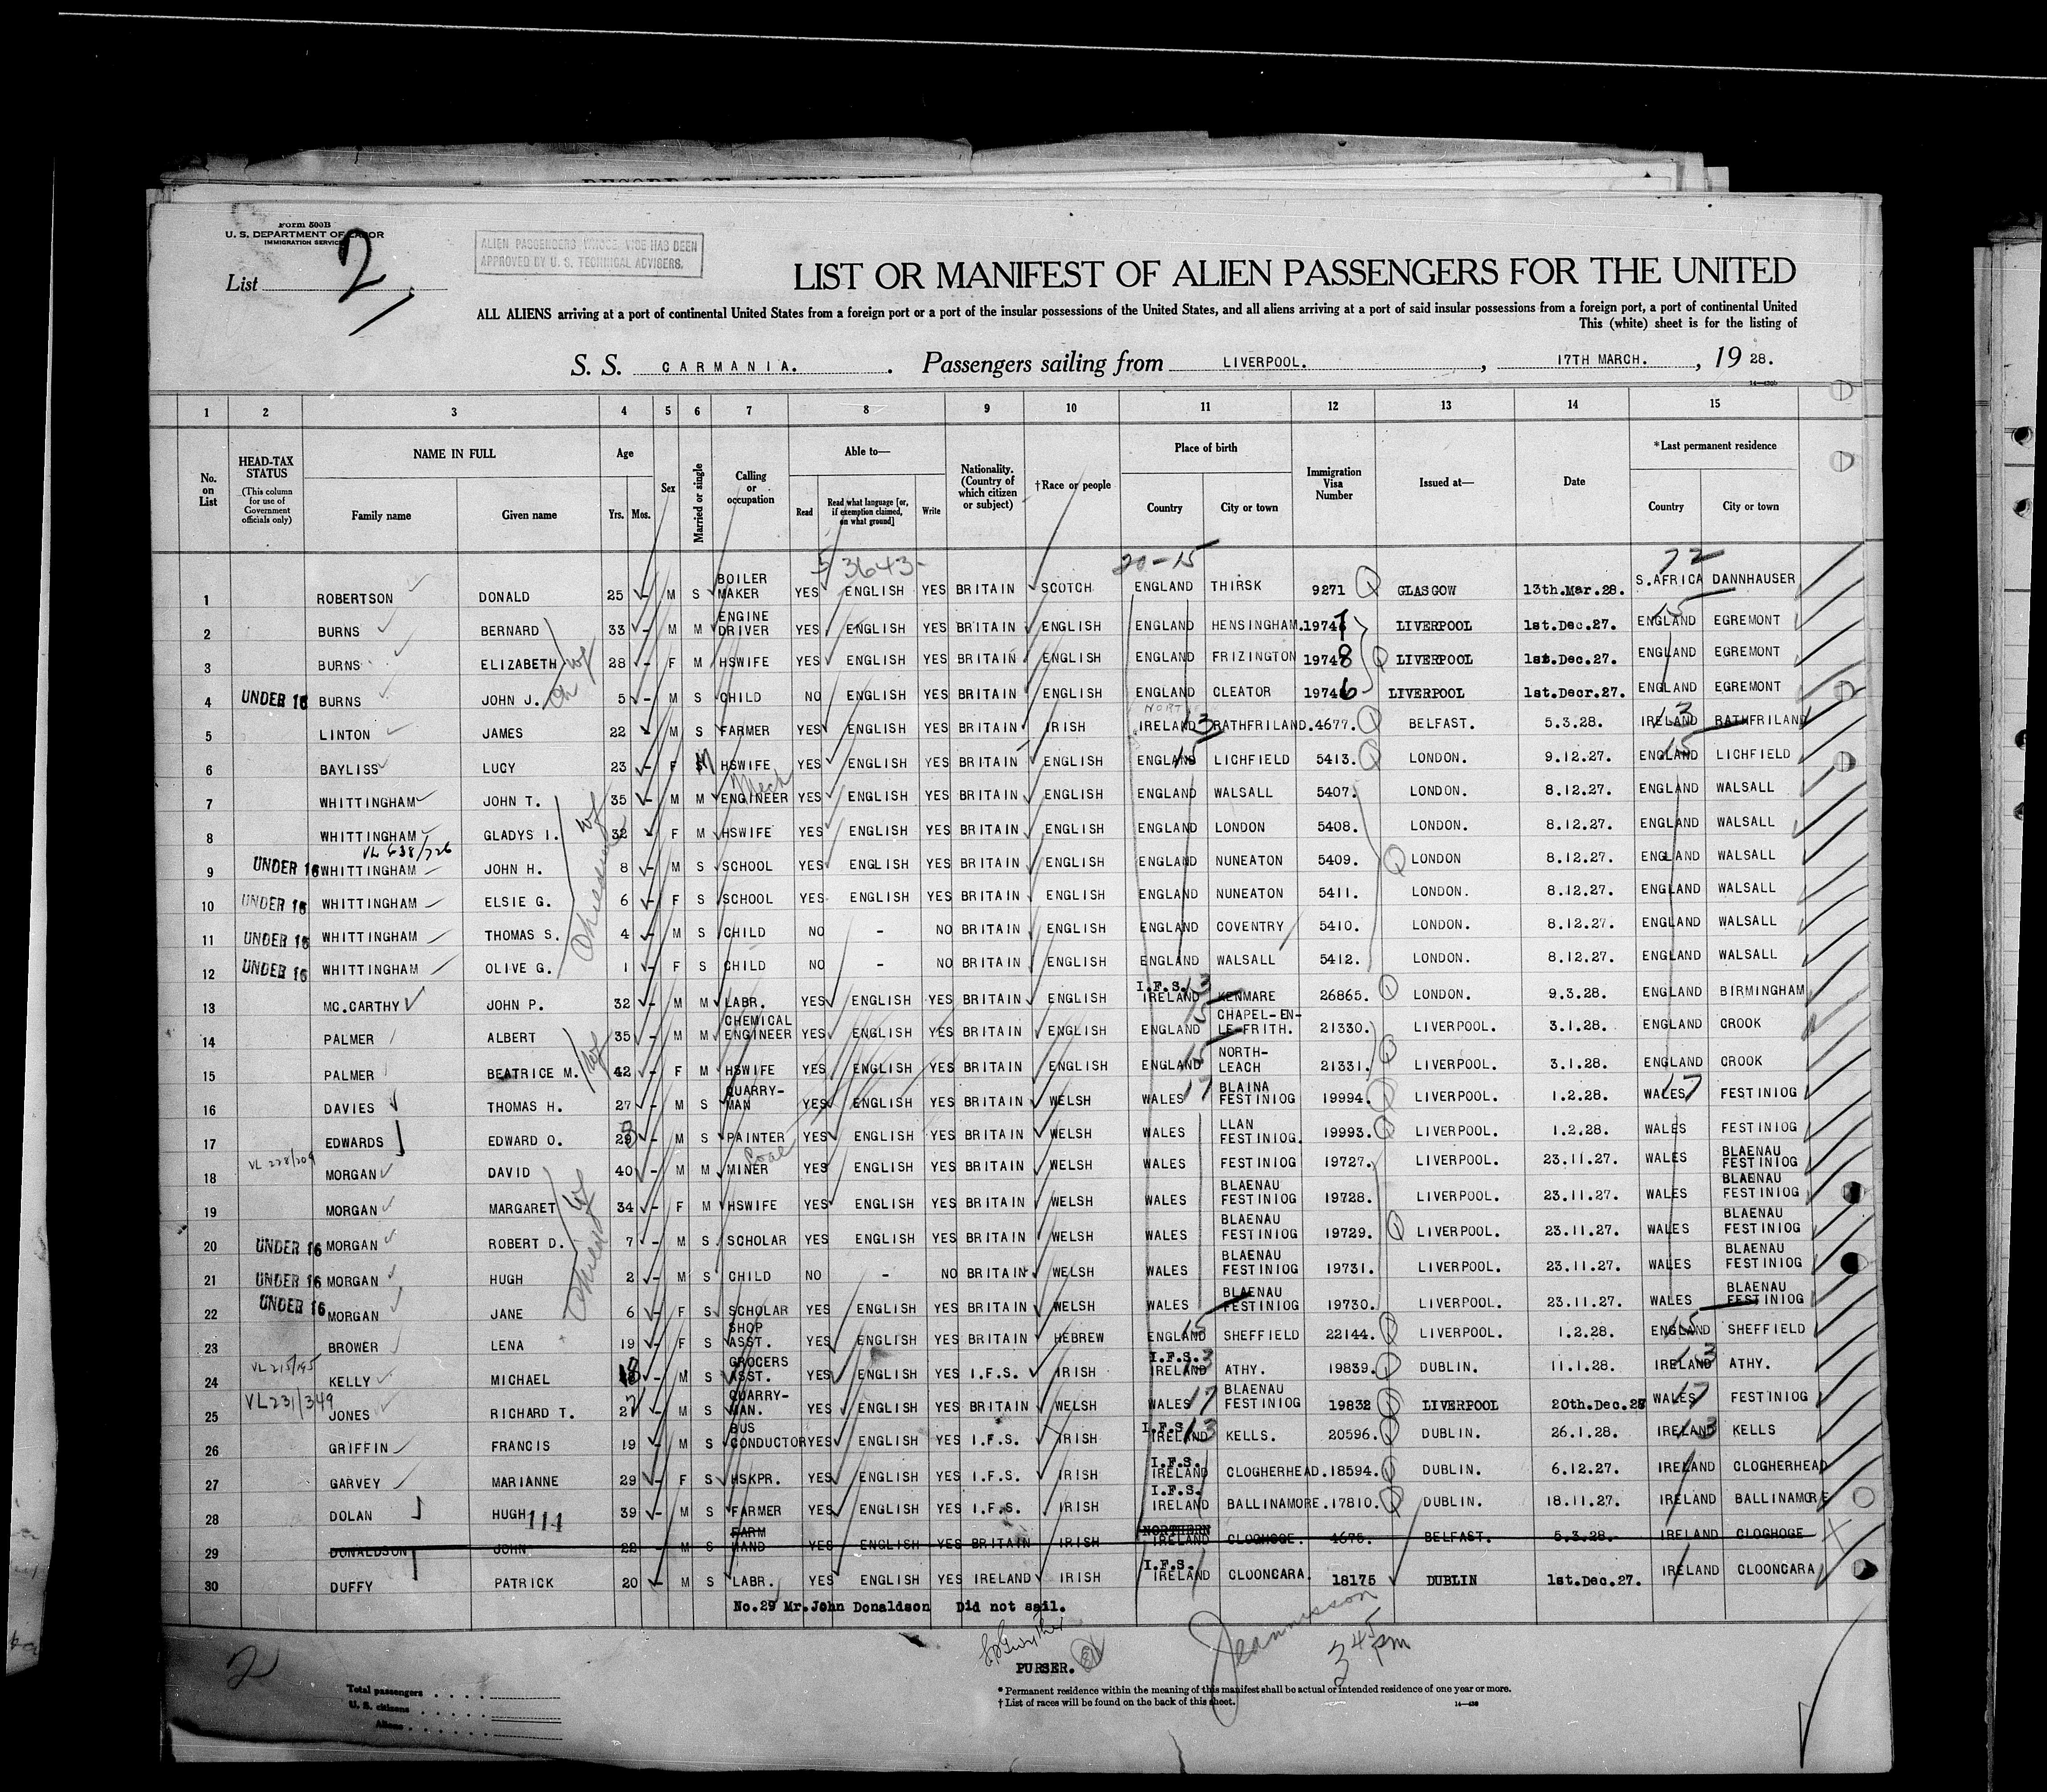 Form 500B
U. S. DEPARTMENT OF LABOR
IMMIGRATION SERVICE
List 2
ALIEN PASSENGERS WHOSE VISE HAS BEEN
APPROVED BY U. S. TECHNICAL ADVISERS.
LIST OR MANIFEST OF ALIEN PASSENGERS FOR THE UNITED
ALL ALIENS arriving at a port of continental United States from a foreign port or a port of the insular possessions of the United States, and all aliens arriving at a port of said insular possessions from a foreign port, a port of continental United
This (white) sheet is for the listing of
S. S. CARMANIA. Passengers sailing from LIVERPOOL. , 17TH MARCH. , 19 28.
1 2 3 4 5 6 7 8 9 10 11 12 13 14 15
No. on List
HEAD-TAX STATUS (This column for use of Government officials only)
NAME IN FULL Family name Given name
Age Yrs. Mos.
Sex
Married or single
Calling or occupation
Able to— Read Read what language [or, if exemption claimed, on what ground] Write
Nationality. (Country of which citizen or subject)
†Race or people
Place of birth Country City or town
Immigration Visa Number
Issued at—
Date
*Last permanent residence Country City or town
53643- 20-15 72
1 ROBERTSON DONALD 25 - M S BOILER MAKER YES ENGLISH YES BRITAIN SCOTCH ENGLAND THIRSK 9271 GLASGOW 13th.Mar.28. S.AFRICA DANNHAUSER
2 BURNS BERNARD 33 - M M ENGINE DRIVER YES ENGLISH YES BRITAIN ENGLISH ENGLAND HENSINGHAM. 19747 LIVERPOOL 1st.Dec.27. ENGLAND 15 EGREMONT
3 BURNS ELIZABETH wf 28 - F M HSWIFE YES ENGLISH YES BRITAIN ENGLISH ENGLAND FRIZINGTON 19748 LIVERPOOL 1st.Dec.27. ENGLAND EGREMONT
4 UNDER 16 BURNS JOHN J. ch 5 - M S CHILD NO ENGLISH YES BRITAIN ENGLISH ENGLAND CLEATOR 19746 LIVERPOOL 1st.Decr.27. ENGLAND EGREMONT
5 LINTON JAMES 22 - M S FARMER YES ENGLISH YES BRITAIN IRISH NORT IRELAND 13 RATHFRILAND. 4677. BELFAST. 5.3.28. IRELAND 13 RATHFRILAND
6 BAYLISS LUCY 23 - F M HSWIFE YES ENGLISH YES BRITAIN ENGLISH ENGLAND 15 LICHFIELD 5413. LONDON. 9.12.27. ENGLAND 15 LICHFIELD
7 WHITTINGHAM JOHN T. 35 - M M Mech ENGINEER YES ENGLISH YES BRITAIN ENGLISH ENGLAND WALSALL 5407. LONDON. 8.12.27. ENGLAND WALSALL
8 WHITTINGHAM GLADYS I. wf 32 - F M HSWIFE YES ENGLISH YES BRITAIN ENGLISH ENGLAND LONDON 5408. LONDON. 8.12.27. ENGLAND WALSALL
VL 638/726
9 UNDER 16 WHITTINGHAM JOHN H. 8 - M S SCHOOL YES ENGLISH YES BRITAIN ENGLISH ENGLAND NUNEATON 5409. LONDON 8.12.27. ENGLAND WALSALL
10 UNDER 16 WHITTINGHAM ELSIE G. Children 6 - F S SCHOOL YES ENGLISH YES BRITAIN ENGLISH ENGLAND NUNEATON 5411. LONDON. 8.12.27. ENGLAND WALSALL
11 UNDER 16 WHITTINGHAM THOMAS S. 4 - M S CHILD NO - NO BRITAIN ENGLISH ENGLAND COVENTRY 5410. LONDON. 8.12.27. ENGLAND WALSALL
12 UNDER 16 WHITTINGHAM OLIVE G. 1 - F S CHILD NO - NO BRITAIN ENGLISH ENGLAND WALSALL 5412. LONDON. 8.12.27. ENGLAND WALSALL
13 MC.CARTHY JOHN P. 32 - M M LABR. YES ENGLISH YES BRITAIN ENGLISH I.F.S. IRELAND 13 KENMARE 26865. LONDON. 9.3.28. ENGLAND BIRMINGHAM
14 PALMER ALBERT 35 - M M CHEMICAL ENGINEER YES ENGLISH YES BRITAIN ENGLISH ENGLAND 15 CHAPEL-EN-LE-FRITH. 21330. LIVERPOOL. 3.1.28. ENGLAND CROOK
15 PALMER BEATRICE M. wf 42 - F M HSWIFE YES ENGLISH YES BRITAIN ENGLISH ENGLAND 15 NORTH-LEACH 21331. LIVERPOOL. 3.1.28. ENGLAND CROOK
16 DAVIES THOMAS H. 27 - M S QUARRY-MAN YES ENGLISH YES BRITAIN WELSH WALES 17 BLAINA FESTINIOG 19994. LIVERPOOL. 1.2.28. WALES 17 FESTINIOG
17 EDWARDS EDWARD O. 23 - M S PAINTER YES ENGLISH YES BRITAIN WELSH WALES LLAN FESTINIOG. 19993. LIVERPOOL. 1.2.28. WALES FESTINIOG
18 VL 228/209 MORGAN DAVID 40 - M M Coal MINER YES ENGLISH YES BRITAIN WELSH WALES FESTINIOG 19727. LIVERPOOL. 23.11.27. WALES BLAENAU FESTINIOG
19 MORGAN MARGARET wf 34 - F M HSWIFE YES ENGLISH YES BRITAIN WELSH WALES BLAENAU FESTINIOG 19728. LIVERPOOL. 23.11.27. WALES BLAENAU FESTINIOG
20 UNDER 16 MORGAN ROBERT D. 7 - M S SCHOLAR YES ENGLISH YES BRITAIN WELSH WALES BLAENAU FESTINIOG 19729. LIVERPOOL. 23.11.27. WALES BLAENAU FESTINIOG
21 UNDER 16 MORGAN HUGH Children 2 - M S CHILD NO - NO BRITAIN WELSH WALES BLAENAU FESTINIOG 19731. LIVERPOOL. 23.11.27. WALES BLAENAU FESTINIOG
22 UNDER 16 MORGAN JANE 6 - F S SCHOLAR YES ENGLISH YES BRITAIN WELSH WALES BLAENAU FESTINIOG 19730. LIVERPOOL. 23.11.27. WALES BLAENAU FESTINIOG
23 BROWER LENA 19 - F S SHOP ASST. YES ENGLISH YES BRITAIN HEBREW ENGLAND 15 SHEFFIELD 22144. LIVERPOOL. 1.2.28. ENGLAND 15 SHEFFIELD
24 VL 215/195 KELLY MICHAEL 18 - M S GROCERS ASST. YES ENGLISH YES I.F.S. IRISH I.F.S. IRELAND 13 ATHY. 19839. DUBLIN. 11.1.28. IRELAND 13 ATHY.
25 VL231/349 JONES RICHARD T. 27 - M S QUARRY-MAN. YES ENGLISH YES BRITAIN WELSH WALES 17 BLAENAU FESTINIOG 19832 LIVERPOOL 20th.Dec.27 WALES 17 FESTINIOG
26 GRIFFIN FRANCIS 19 - M S BUS CONDUCTOR YES ENGLISH YES I.F.S. IRISH I.F.S. IRELAND 13 KELLS. 20596. DUBLIN. 26.1.28. IRELAND 13 KELLS
27 GARVEY MARIANNE 29 - F S HSKPR. YES ENGLISH YES I.F.S. IRISH I.F.S. IRELAND CLOGHERHEAD. 18594. DUBLIN. 6.12.27. IRELAND CLOGHERHEAD
28 DOLAN HUGH 114 39 - M S FARMER YES ENGLISH YES I.F.S. IRISH I.F.S. IRELAND BALLINAMORE. 17810. DUBLIN. 18.11.27. IRELAND BALLINAMORE
29 DONALDSON JOHN 22 - M S FARM HAND YES ENGLISH YES BRITAIN IRISH NORTHERN IRELAND CLOGHOGE. 4676. BELFAST. 5.3.28. IRELAND CLOGHOGE
30 DUFFY PATRICK 20 - M S LABR. YES ENGLISH YES IRELAND IRISH I.F.S. IRELAND CLOONCARA. 18175 DUBLIN 1st.Dec.27. IRELAND CLOONCARA
No.29 Mr.John Donaldson Did not sail.
PURSER.
3 45 pm
2
Total passengers
U. S. citizens
Aliens
* Permanent residence within the meaning of this manifest shall be actual or intended residence of one year or more.
† List of races will be found on the back of this sheet.